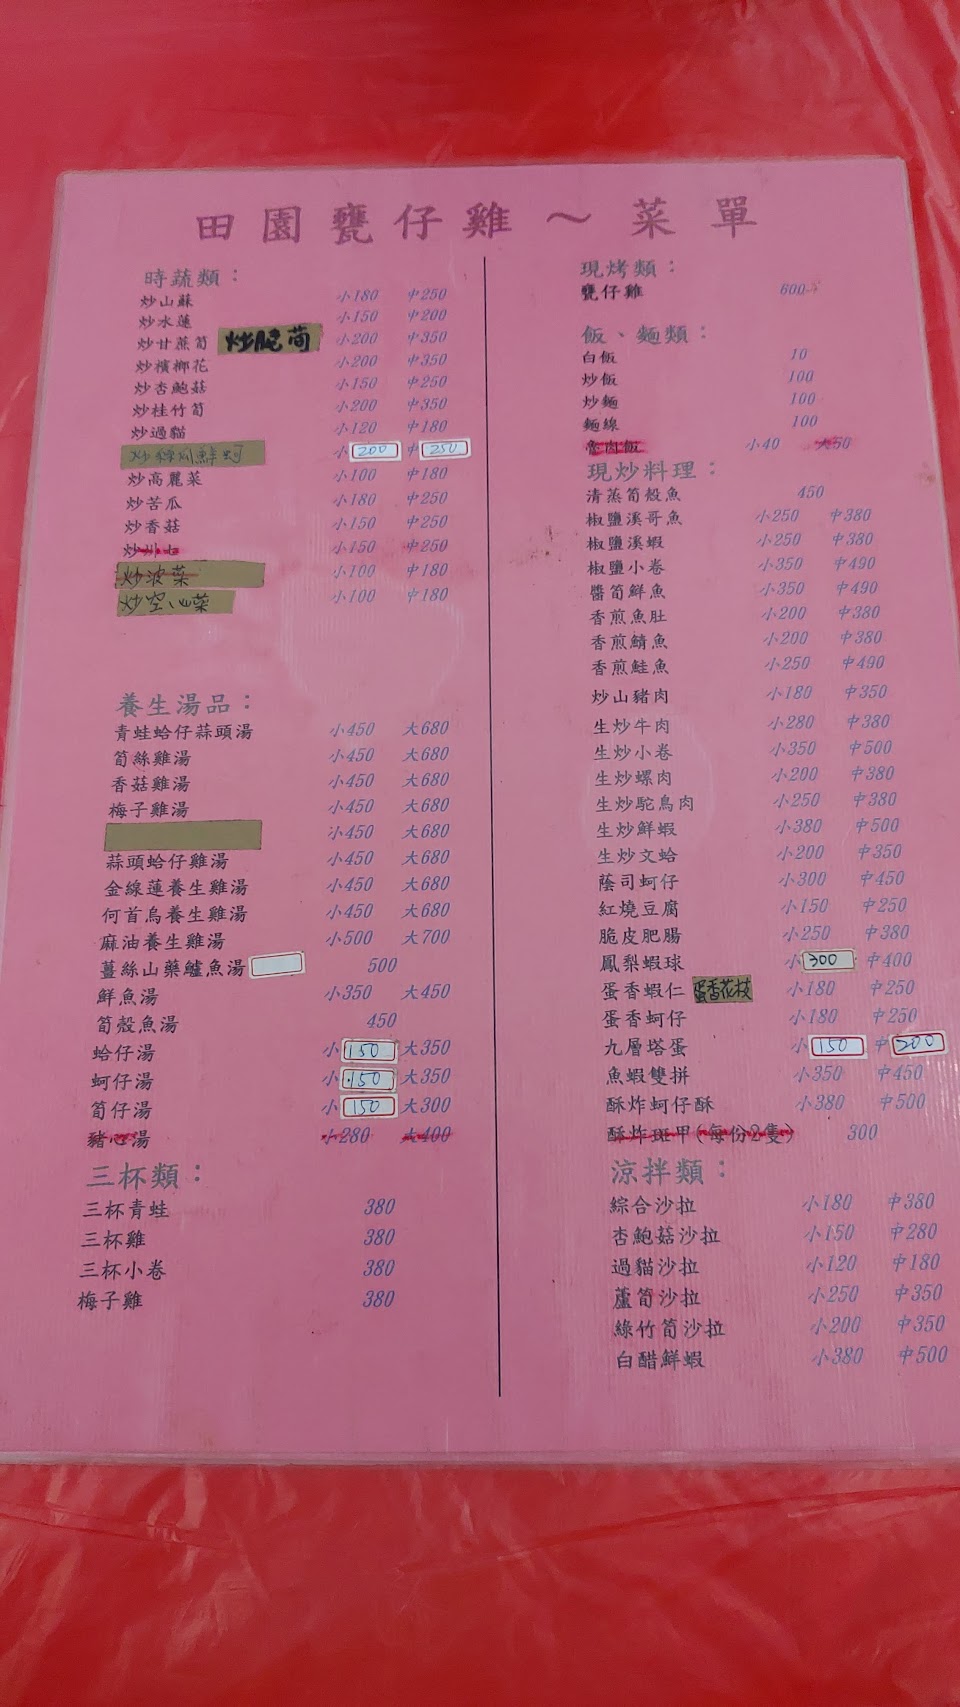 田園甕仔雞～菜單
時蔬類：
炒山蘇 小180 中250
炒水蓮 小150 中200
炒甘蔗筍 炒脆筍 小200 中350
炒檳榔花 小200 中350
炒杏鮑菇 小150 中250
炒桂竹筍 小200 中350
炒過貓 小120 中180
小200 中250
炒高麗菜 小100 中180
炒苦瓜 小180 中250
炒香菇 小150 中250
炒川七 小150 中250
炒波菜 小100 中180
炒空心菜 小100 中180
養生湯品：
青蛙蛤仔蒜頭湯 小450 大680
筍絲雞湯 小450 大680
香菇雞湯 小450 大680
梅子雞湯 小450 大680
小450 大680
蒜頭蛤仔雞湯 小450 大680
金線蓮養生雞湯 小450 大680
何首烏養生雞湯 小450 大680
麻油養生雞湯 小500 大700
薑絲山藥鱸魚湯 500
鮮魚湯 小350 大450
筍殼魚湯 450
蛤仔湯 小150 大350
蚵仔湯 小150 大350
筍仔湯 小150 大300
豬心湯 小280 大400
三杯類：
三杯青蛙 380
三杯雞 380
三杯小卷 380
梅子雞 380
現烤類：
甕仔雞 600
飯、麵類：
白飯 10
炒飯 100
炒麵 100
麵線 100
魯肉飯 小40 大50
現炒料理：
清蒸筍殼魚 450
椒鹽溪哥魚 小250 中380
椒鹽溪蝦 小250 中380
椒鹽小卷 小350 中490
醬筍鮮魚 小350 中490
香煎魚肚 小200 中380
香煎鯖魚 小200 中380
香煎鮭魚 小250 中490
炒山豬肉 小180 中350
生炒牛肉 小280 中380
生炒小卷 小350 中500
生炒螺肉 小200 中380
生炒駝鳥肉 小250 中380
生炒鮮蝦 小380 中500
生炒文蛤 小200 中350
蔭司蚵仔 小300 中450
紅燒豆腐 小150 中250
脆皮肥腸 小250 中380
鳳梨蝦球 小300 中400
蛋香蝦仁 蛋香花枝 小180 中250
蛋香蚵仔 小180 中250
九層塔蛋 小150 中200
魚蝦雙拼 小350 中450
酥炸蚵仔酥 小380 中500
酥炸斑甲(每份2隻) 300
涼拌類：
綜合沙拉 小180 中380
杏鮑菇沙拉 小150 中280
過貓沙拉 小120 中180
蘆筍沙拉 小250 中350
綠竹筍沙拉 小200 中350
白醋鮮蝦 小380 中500